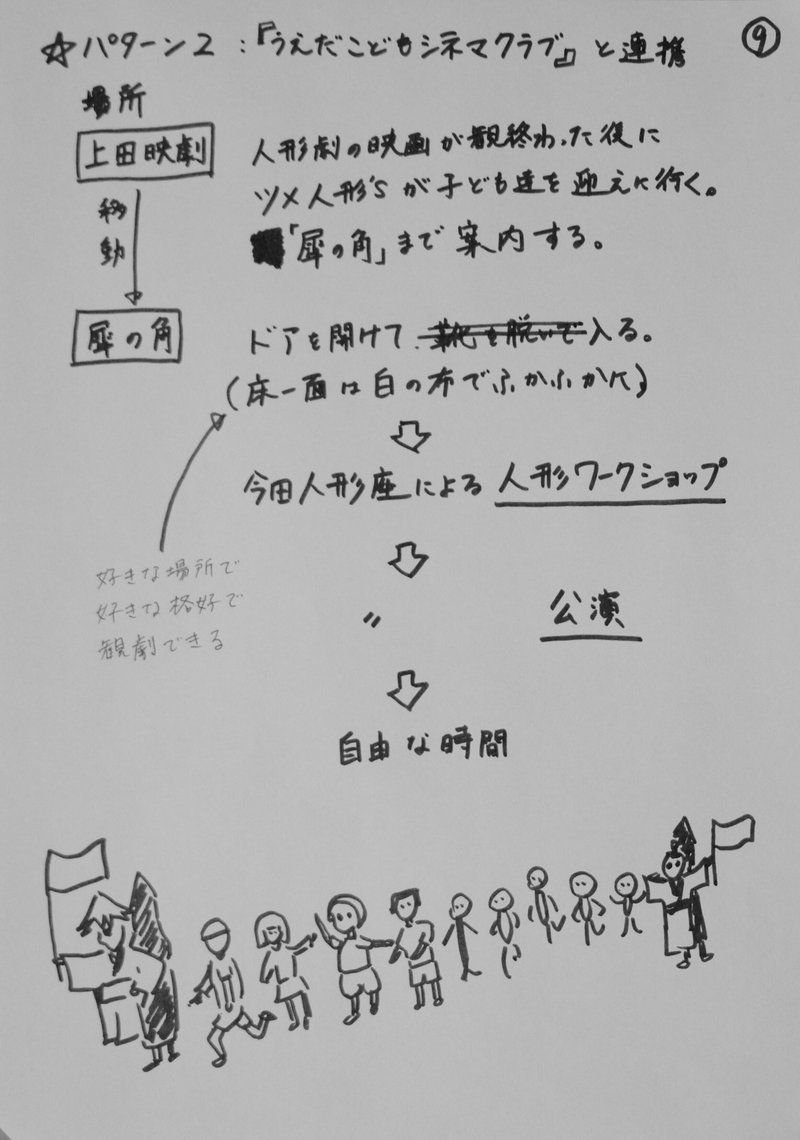 ☆パターン2:『うえだこどもシネマクラブ』と連携
⑨
場所
上田映劇
人形劇の映画が観終わった後に
ツメ人形'sが子ども達を迎えに行く。
「犀の角」まで案内する。
移動
犀の角
ドアを開けて、靴を脱いで入る。
(床一面は白の布でふかふかに)
今田人形座による人形ワークショップ
好きな場所で
好きな格好で
観劇できる
〃 公演
自由な時間